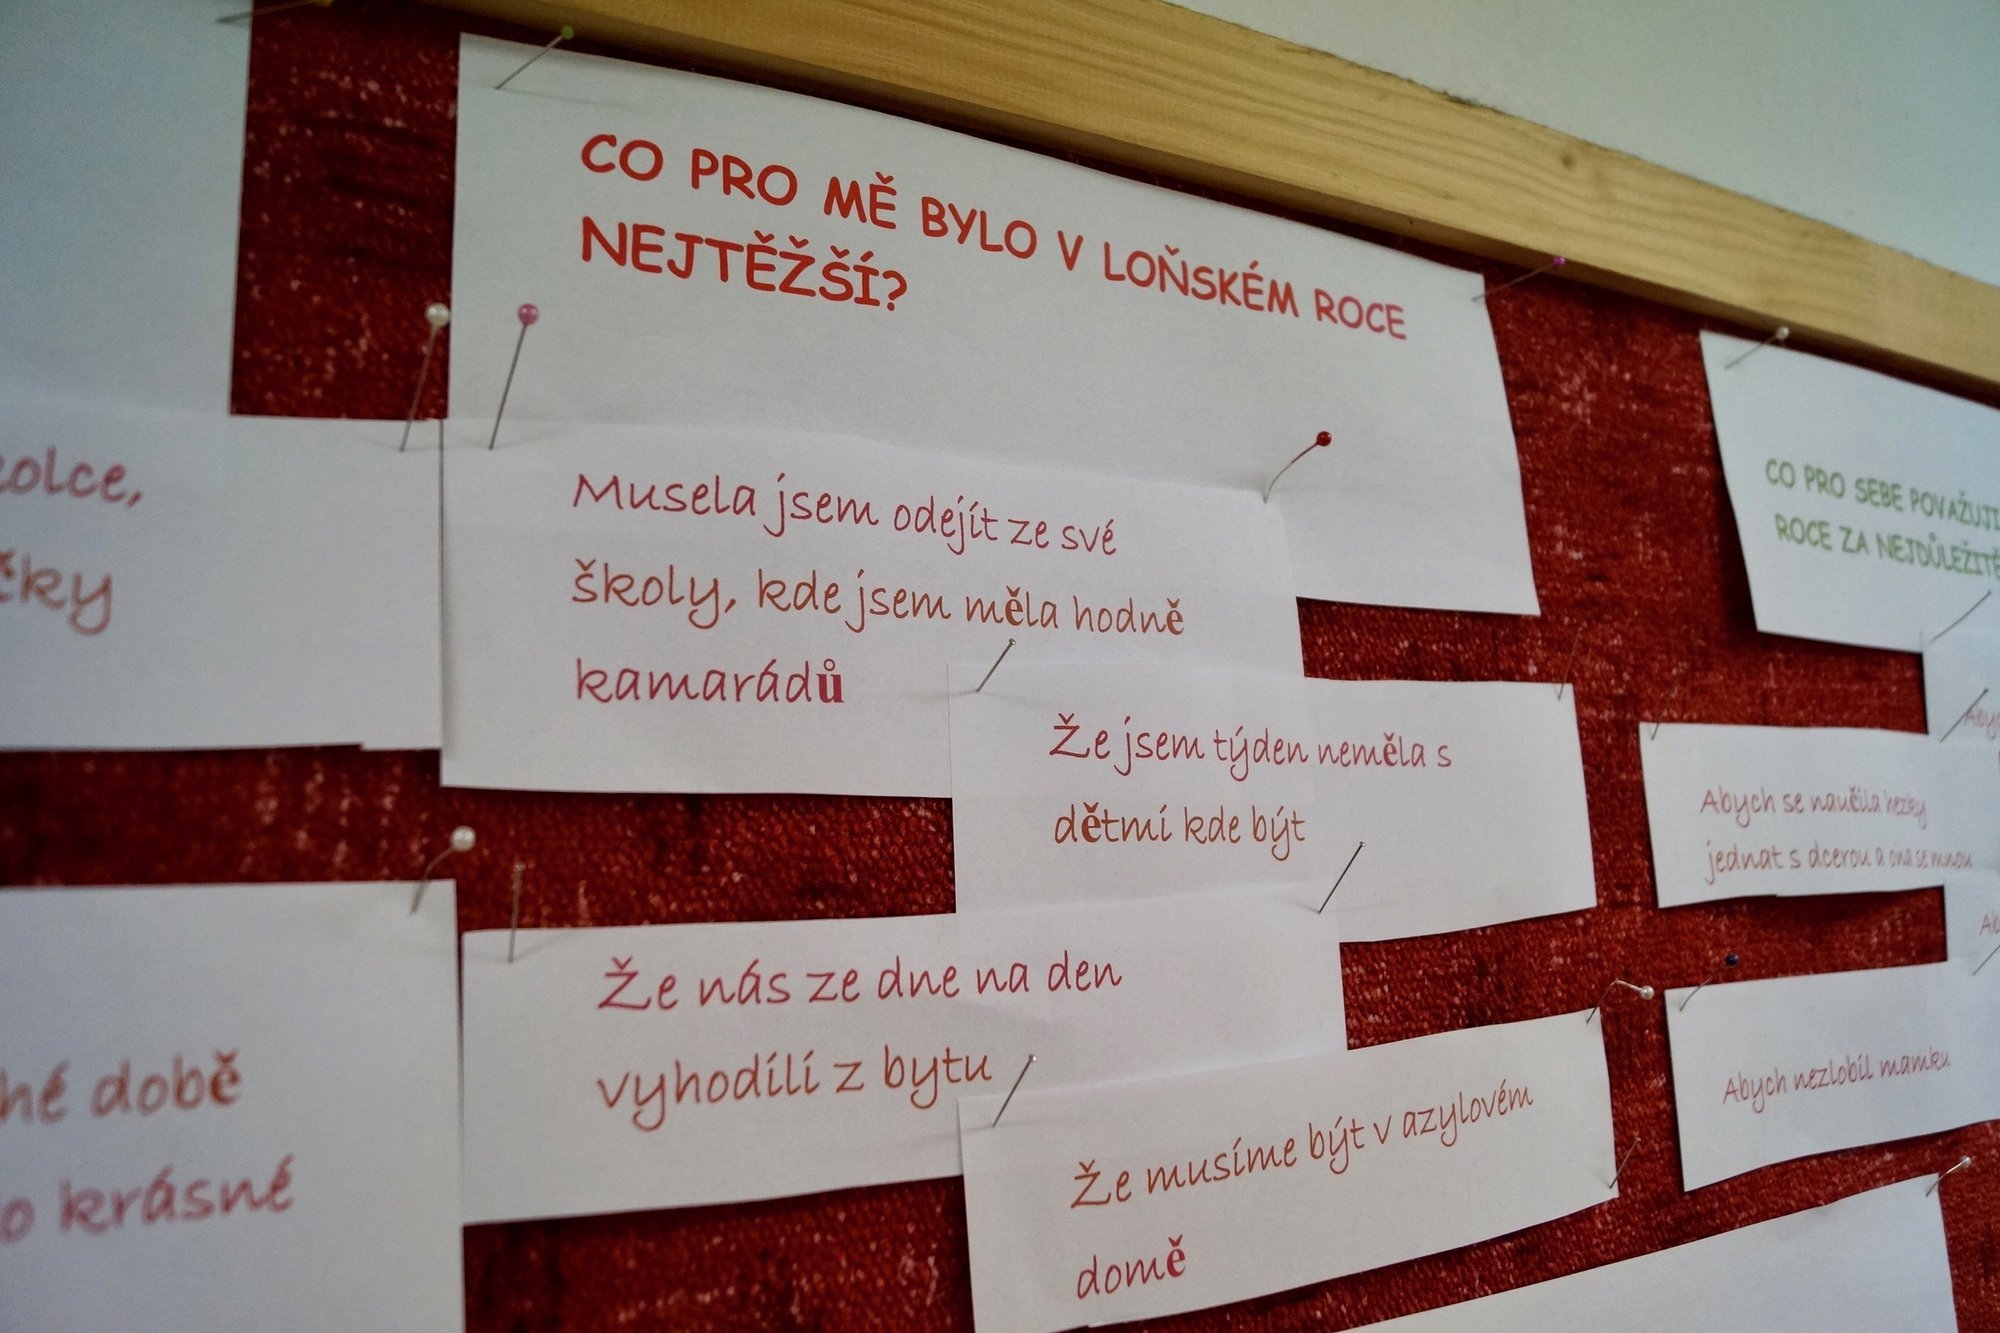 CO PRO MĚ BYLO V LOŇSKÉM ROCE
NEJTĚŽŠÍ?
Musela jsem odejít ze své
školy, kde jsem měla hodně
kamarádů
Že jsem týden neměla s
dětmi kde být
Že nás ze dne na den
vyhodili z bytu
Že musíme být v azylovém
domě
čky
době
krásné
CO PRO SEBE
ROCE ZA
Abych se naučila hezky
jednat s dcerou a ona se mnou
Abych nezlobil mamku